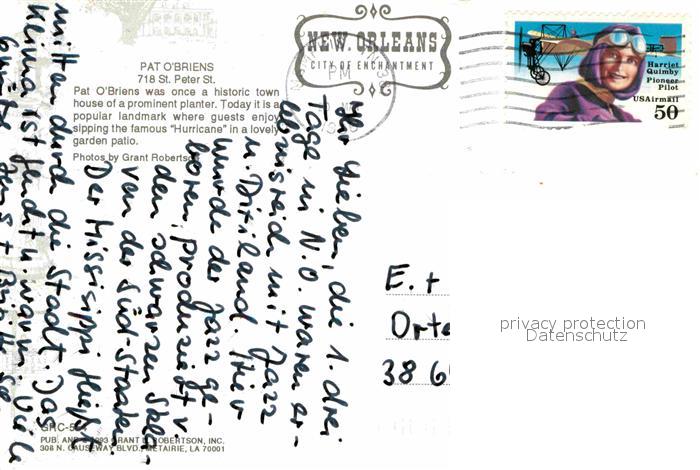 PAT O'BRIENS
718 St. Peter St.
Pat O'Briens was once a historic town
house of a prominent planter. Today it is a
popular landmark where guests enjoy
sipping the famous "Hurricane" in a lovely
garden patio.
Photos by Grant Robertson
NEW ORLEANS
CITY OF ENCHANTMENT
PM
Harriet
Quimby
Pioneer
Pilot
USAirmail
50
Ihr Lieben, die 1. drei
Tage in N.O. waren er-
lebnisreich mit Jazz
u. Dixiland. Hier
wurde der Jazz ge-
boren, produziert v.
den schwarzen Skla-
ven der Süd-Staaten.
Der Mississippi fließt
mitten durch die Stadt. Das
Klima ist feucht u. warm. Viele
Grüße Jens + Brigitte
E. +
Orte
38 6
privacy protection
Datenschutz
GRC-5
PUB. AND © 1993 GRANT L. ROBERTSON, INC.
308 N. CAUSEWAY BLVD., METAIRIE, LA 70001